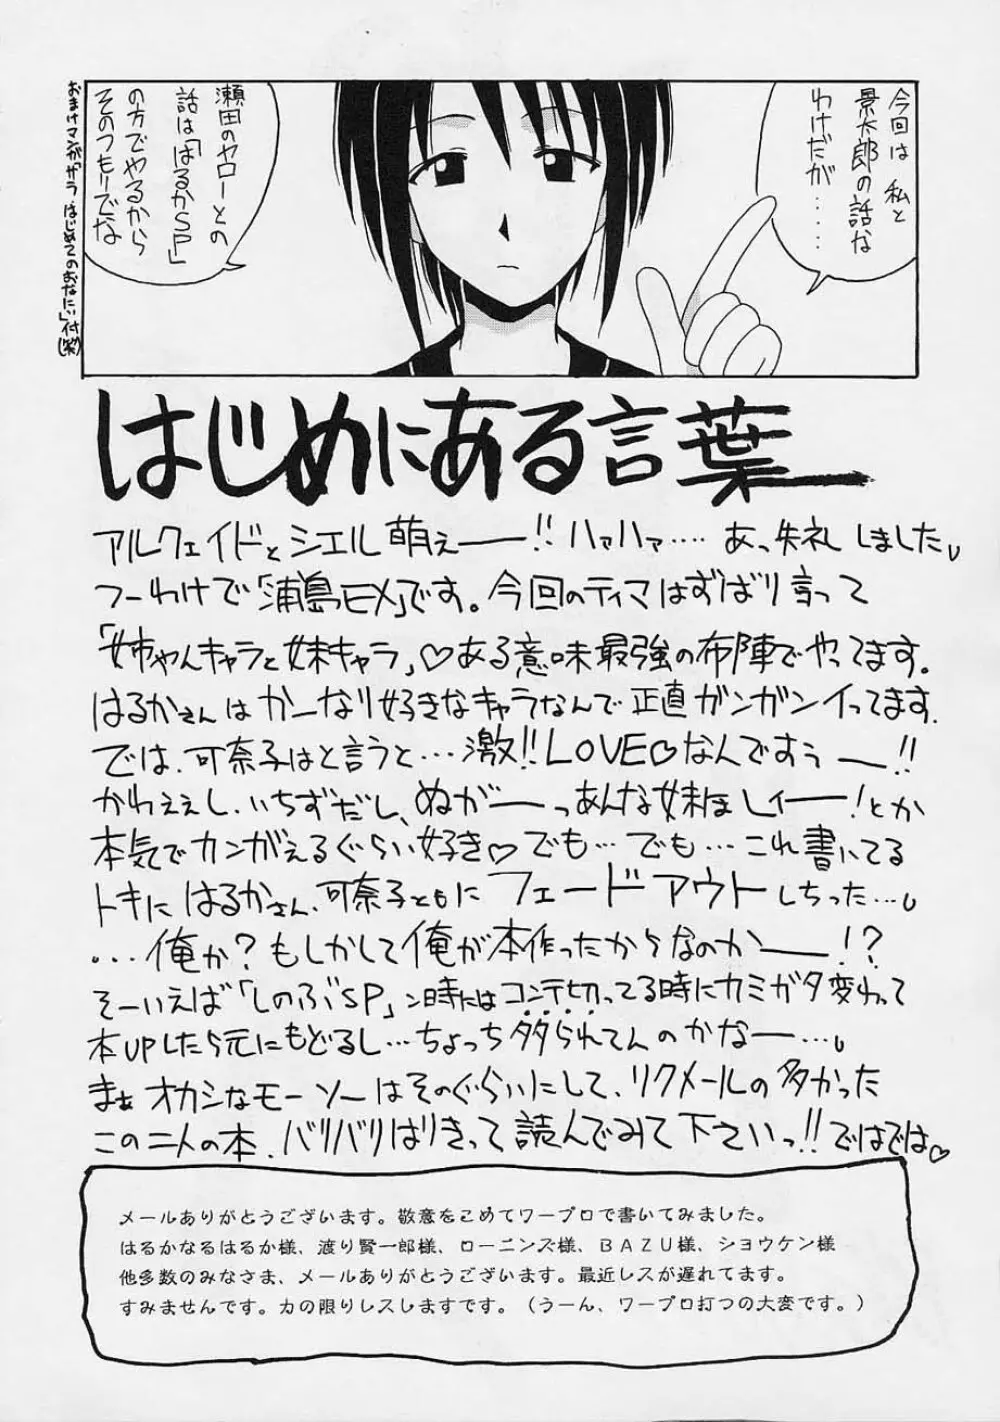 今回は 私と
景太郎の話な
わけだが‥‥‥
瀬田のヤローとの
話は「はるかSP」
の方でやるから
そのつもりでな
おまけマンガ「サラ はじめてのおなにぃ」付(笑)
はじめにある言葉
アルクェイドとシエル萌えー!! ハァハァ‥‥ あっ失礼しました
つーわけで「浦島EX」です。今回のティマはずばり言って
「姉ちゃんキャラと妹キャラ」♡ある意味最強の布陣でやってます。
はるかさんはかーなり好きなキャラなんで正直ガンガンイってます.
では、可奈子はと言うと…激!!LOVE♡なんですぅー!!
かわええし、いちずだし、ぬがーっあんな妹ほしィー!とか
本気でカンがえるぐらい好き♡でも…でも…これ書いてる
トキにはるかさん、可奈子ともにフェードアウトしちった…
…俺か?もしかして俺が本作ったからなのかー!?
そーいえば「しのぶSP」ン時にはコンテ切ってる時にカミガタ変わって
本UPしたら元にもどるし…ちょっち务られてんのかなー…
まぁオカシなモーソーはそのぐらいにして、リクメールの多かった
この二人の本、バリバリはりきって読んでみて下さいっ!!ではでは♡
メールありがとうございます。敬意をこめてワープロで書いてみました。
はるかなるはるか様、渡り賢一郎様、ローニンズ様、BAZU様、ショウケン様
他多数のみなさま、メールありがとうございます。最近レスが遅れてます。
すみませんです。力の限りレスしますです。(うーん、ワープロ打つの大変です。)